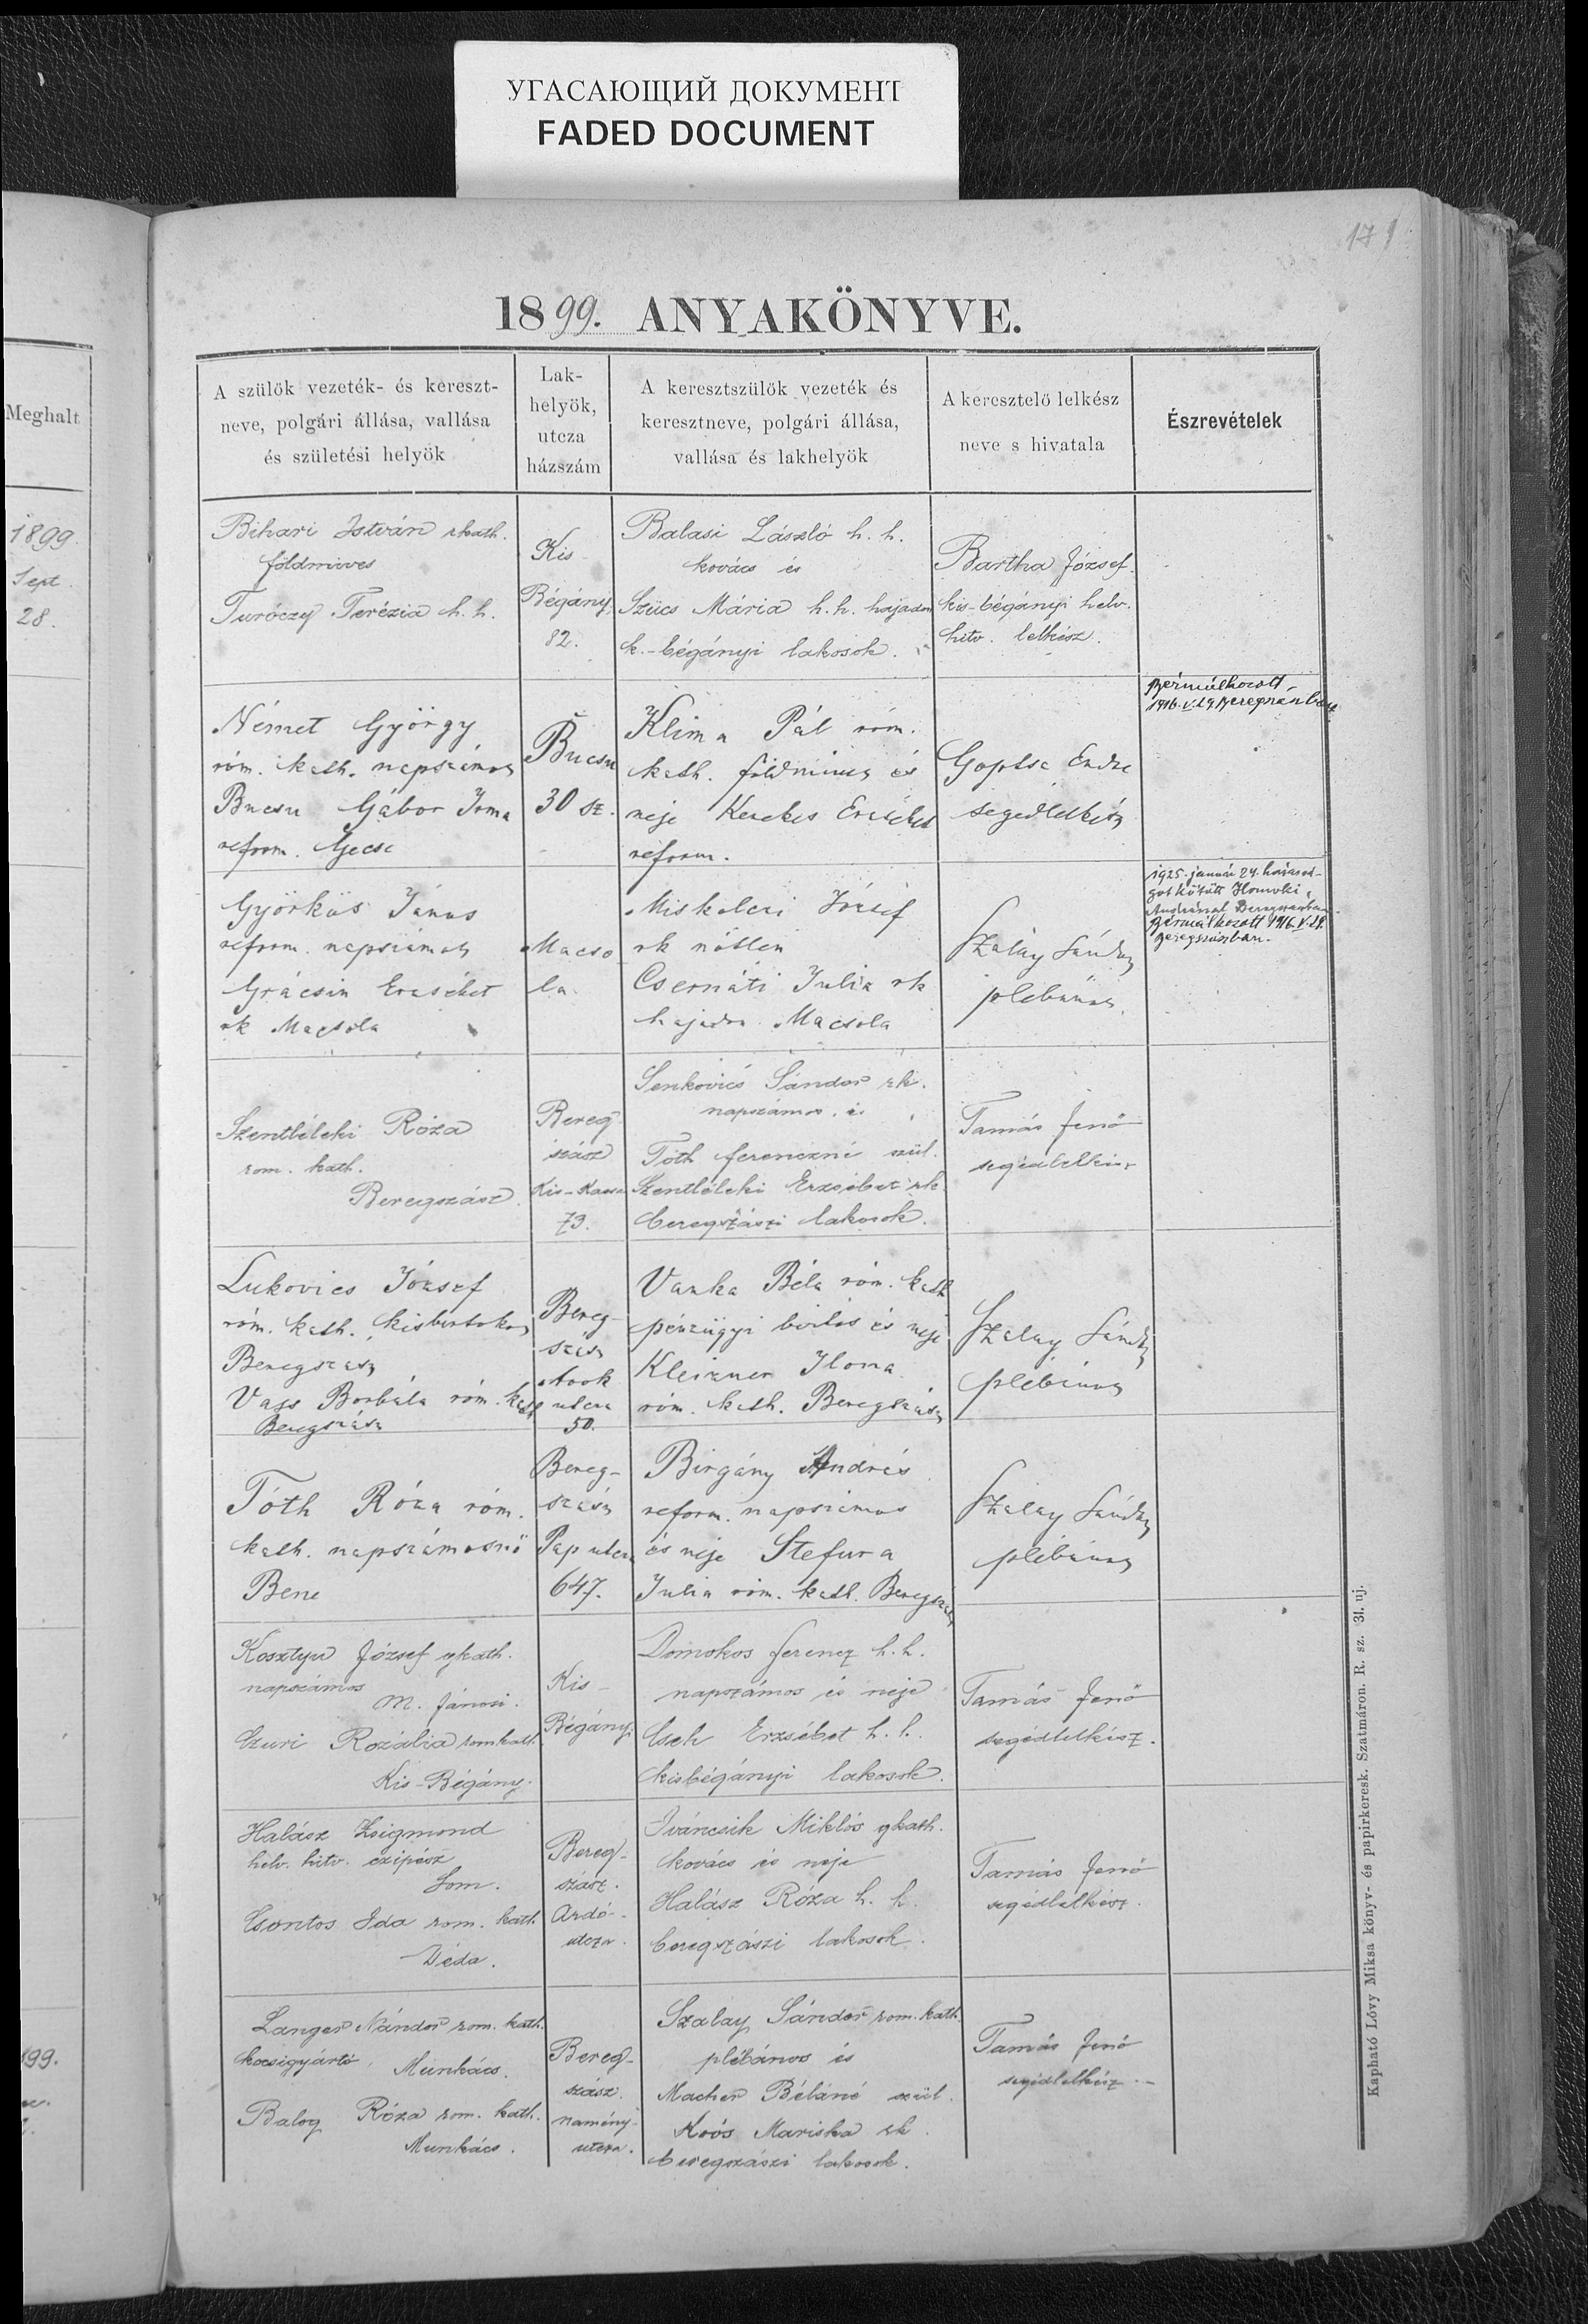 УГАСАЮЩИЙ ДОКУМЕНТ
FADED DOCUMENT
171
1899. ANYAKÖNYVE.
Meghalt
1899.
Sept.
28.
A szülök vezeték- és kereszt-
neve, polgári állása, vallása
és születési helyök
Lak-
helyök,
utcza
házszám
A keresztszülök vezeték és
keresztneve, polgári állása,
vallása és lakhelyök
A keresztelő lelkész
neve s hivatala
Észrevételek
Bihari István rkath.
földmives
Turóczy Terézia h. h.
Kis-
Bégány,
82.
Balasi László h. h.
kovács és
Szücs Mária h. h. hajadon
k.-bégányi lakosok.
Bartha József
kis-bégányi helv.
hitv. lelkész.
Német György
róm. kath. napszámos
Bucsu Gábor Irma
reform. Gecse
Bucsu
30 sz.
Klima Pál róm.
kath. földmives és
neje Kerekes Erzsébet
reform.
Goptsa Endre
segédlelkész
Bérmálkozott
1916. V. 29 Beregszászban
Györkös János
reform. napszámos
Grácsin Erzsébet
rk Macsola
Macso
la
Miskolczi József
rk nőtlen
Csernáti Julia rk
hajadon Macsola
Szalay Sándor
plébános.
1925. január 24. házassá-
got kötött Homoki
Andrással Beregszászban.
Bérmálkozott 1916. V. 29.
Beregszászban.
Szentléleki Róza
rom. kath.
Beregszász.
Bereg
szász
Kis-Kassa
73.
Senkovics Sándor rk.
napszámos és
Tóth Ferenczné szül.
Szentléleki Erzsébet rk.
beregszászi lakosok.
Tamás Jenő
segédlelkész
Lukovics József
róm. kath. kisbirtokos
Beregszász
Vass Borbála róm. kath
Beregszász
Bereg-
szász
Árok
utcza
50.
Vanka Béla róm. kath
pénzügyi biztos és neje
Kleizner Ilona
róm. kath. Beregszász
Szalay Sándor
plébános
Tóth Róza róm.
kath. napszámosnő
Bene
Bereg-
szász
Pap utcza
647.
Birgány András
reform. napszámos
és neje Stefura
Julia róm. kath. Beregszász
Szalay Sándor
plébános
Kosztyu József gkath.
napszámos
M. Jánosi.
Czuri Rozália rom. kath.
Kis-Bégány.
Kis-
Bégány.
Domokos Ferencz h. h.
napszámos és neje
Cseh Erzsébet h. h.
kisbégányi lakosok.
Tamás Jenő
segédlelkész.
Halász Zsigmond
helv. hitv. czipész
Som.
Csontos Ida rom. kath.
Déda.
Bereg-
szász.
Ardó-
utcza.
Iváncsik Miklós gkath.
kovács és neje
Halász Róza h. h.
beregszászi lakosok.
Tamás Jenő
segédlelkész.
Langer Nándor rom. kath.
kocsigyártó, Munkács.
Balog Róza rom. kath.
Munkács.
Bereg-
szász.
namény-
utcza.
Szalay Sándor rom. kath.
plébános és
Macher Béláné szül.
Koós Mariska rk.
beregszászi lakosok.
Tamás Jenő
segédlelkész.
Kapható Lővy Miksa könyv- és papirkeresk. Szatmáron. R. sz. 31. uj.